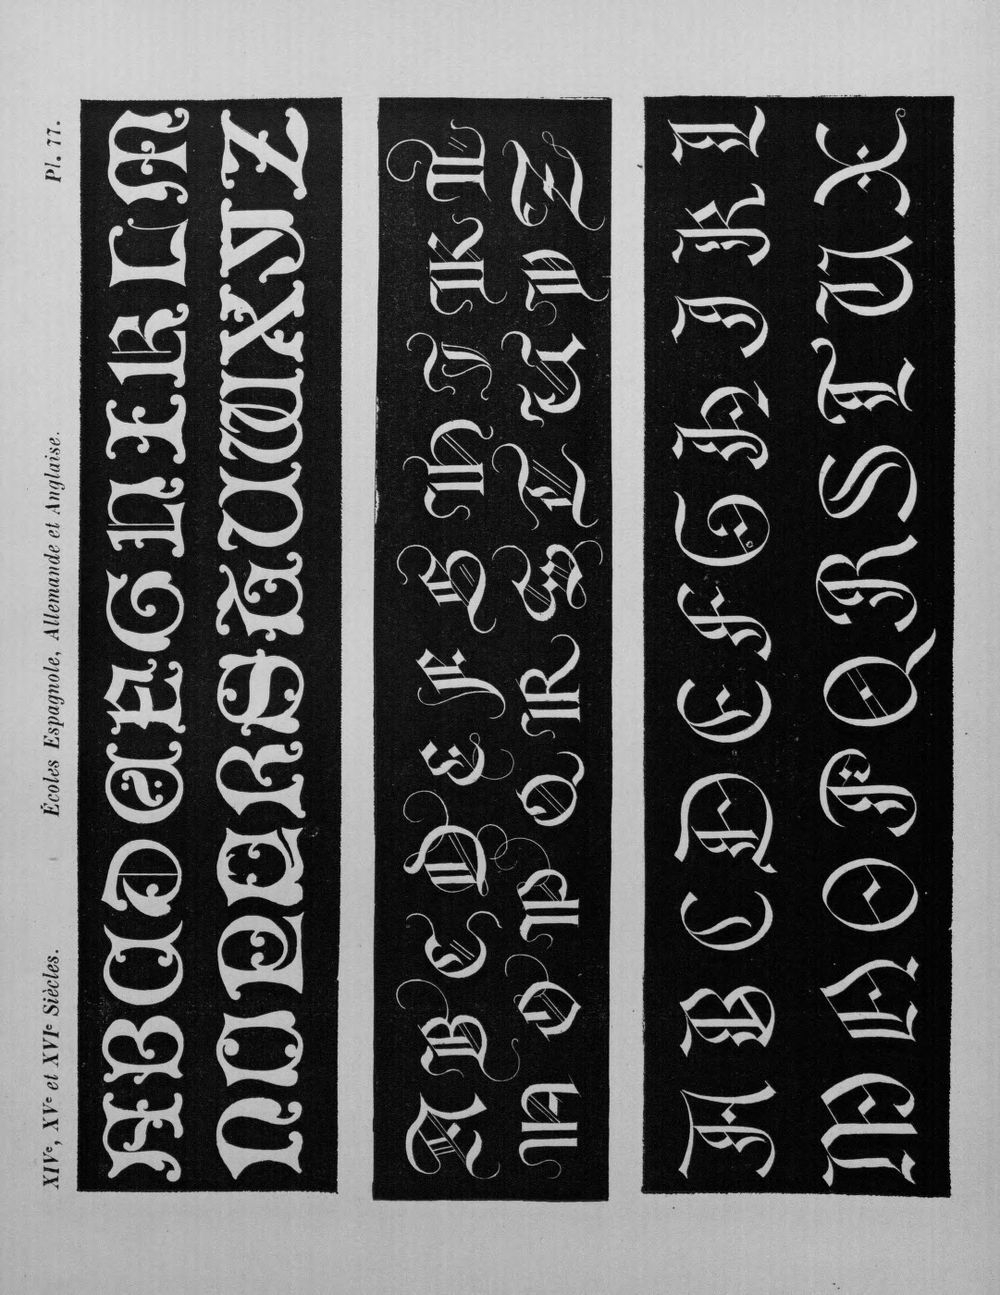 XIVe, XVe et XVIe Siècles. Écoles Espagnole, Allemande et Anglaise. Pl. 77.
A B C D E F G H I K L M
N O P Q R S T U W X Y Z
A B C D E F G H I K L
N O P Q R S T U V Z
A B C D E F G H I K L
M N O P Q R S T U X